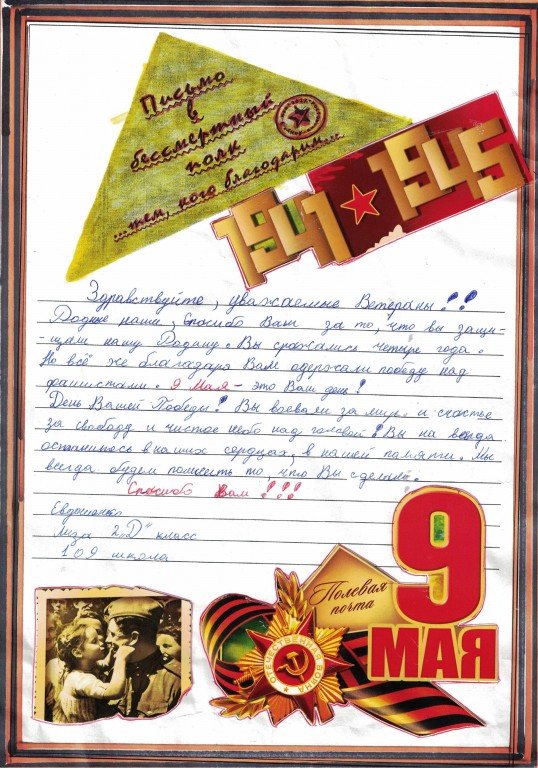 Письмо
в
бессмертный
полк
...тем, кого благодарим...
1941 1945
Здравствуйте, уважаемые Ветераны!!!
Родные наши, Спосибо Вам за то, что вы защи-
щали нашу Родину. Вы сражались четыре года.
Но всё же благадаря Вам одержали победу над
фашистами. 9 Мая - это Ваш день!
День Вашей Победы! Вы воевали за мир и счастье
за свободу и чистое небо над головой! Вы на всегда
останитесь в наших сердцах, в нашей памяти. Мы
всегда будем помнить то, что Вы сделали.
Спосибо Вам!!!
Лиза 2 „D" класс
109 школа
Полевая
почта
9
МАЯ
ОТЕЧЕСТВЕННАЯ ВОЙНА